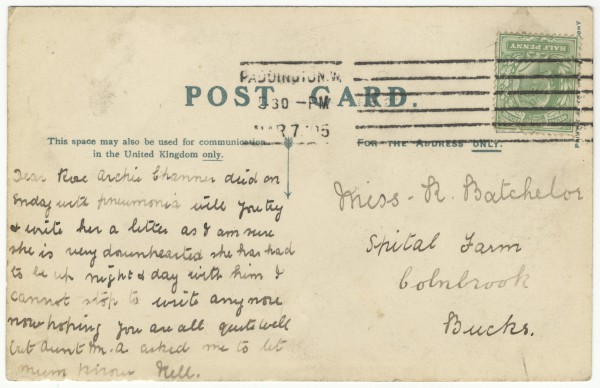 HALF PENNY
PADDINGTON.W.
3 30 - PM
MAR 7 05
POST CARD.
This space may also be used for communication
in the United Kingdom only.
FOR THE ADDRESS ONLY.
Dear Rose Archie Channer died on
Sunday with pneumonia will you try
& write her a letter as I am sure
she is very downhearted she has had
to be up night & day with him I
cannot stop to write any more
now hoping you are all quite well
but Aunt M.A asked me to let
mum know Nell.
Miss R. Batchelor
Spital Farm
Colnbrook
Bucks.